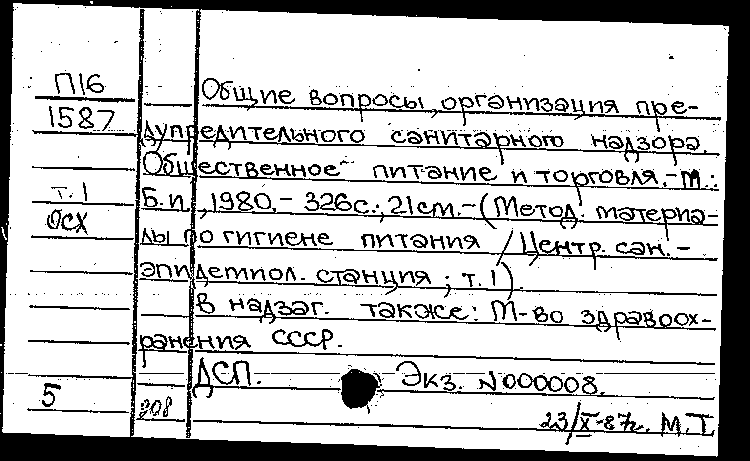 П16
1587
т. 1
ОСХ
Общие вопросы, организация пре-
дупредительного санитарного надзора.
Общественное питание и торговля.-М.:
Б.и., 1980.- 326с.; 21см.-(Метод. материа-
лы по гигиене питания / Центр. сан.-
эпидемиол. станция; т. 1).
В надзаг. также: М-во здравоох-
ранения СССР.
ДСП. Экз. №000008.
5
908
23/X-87г. М.Т